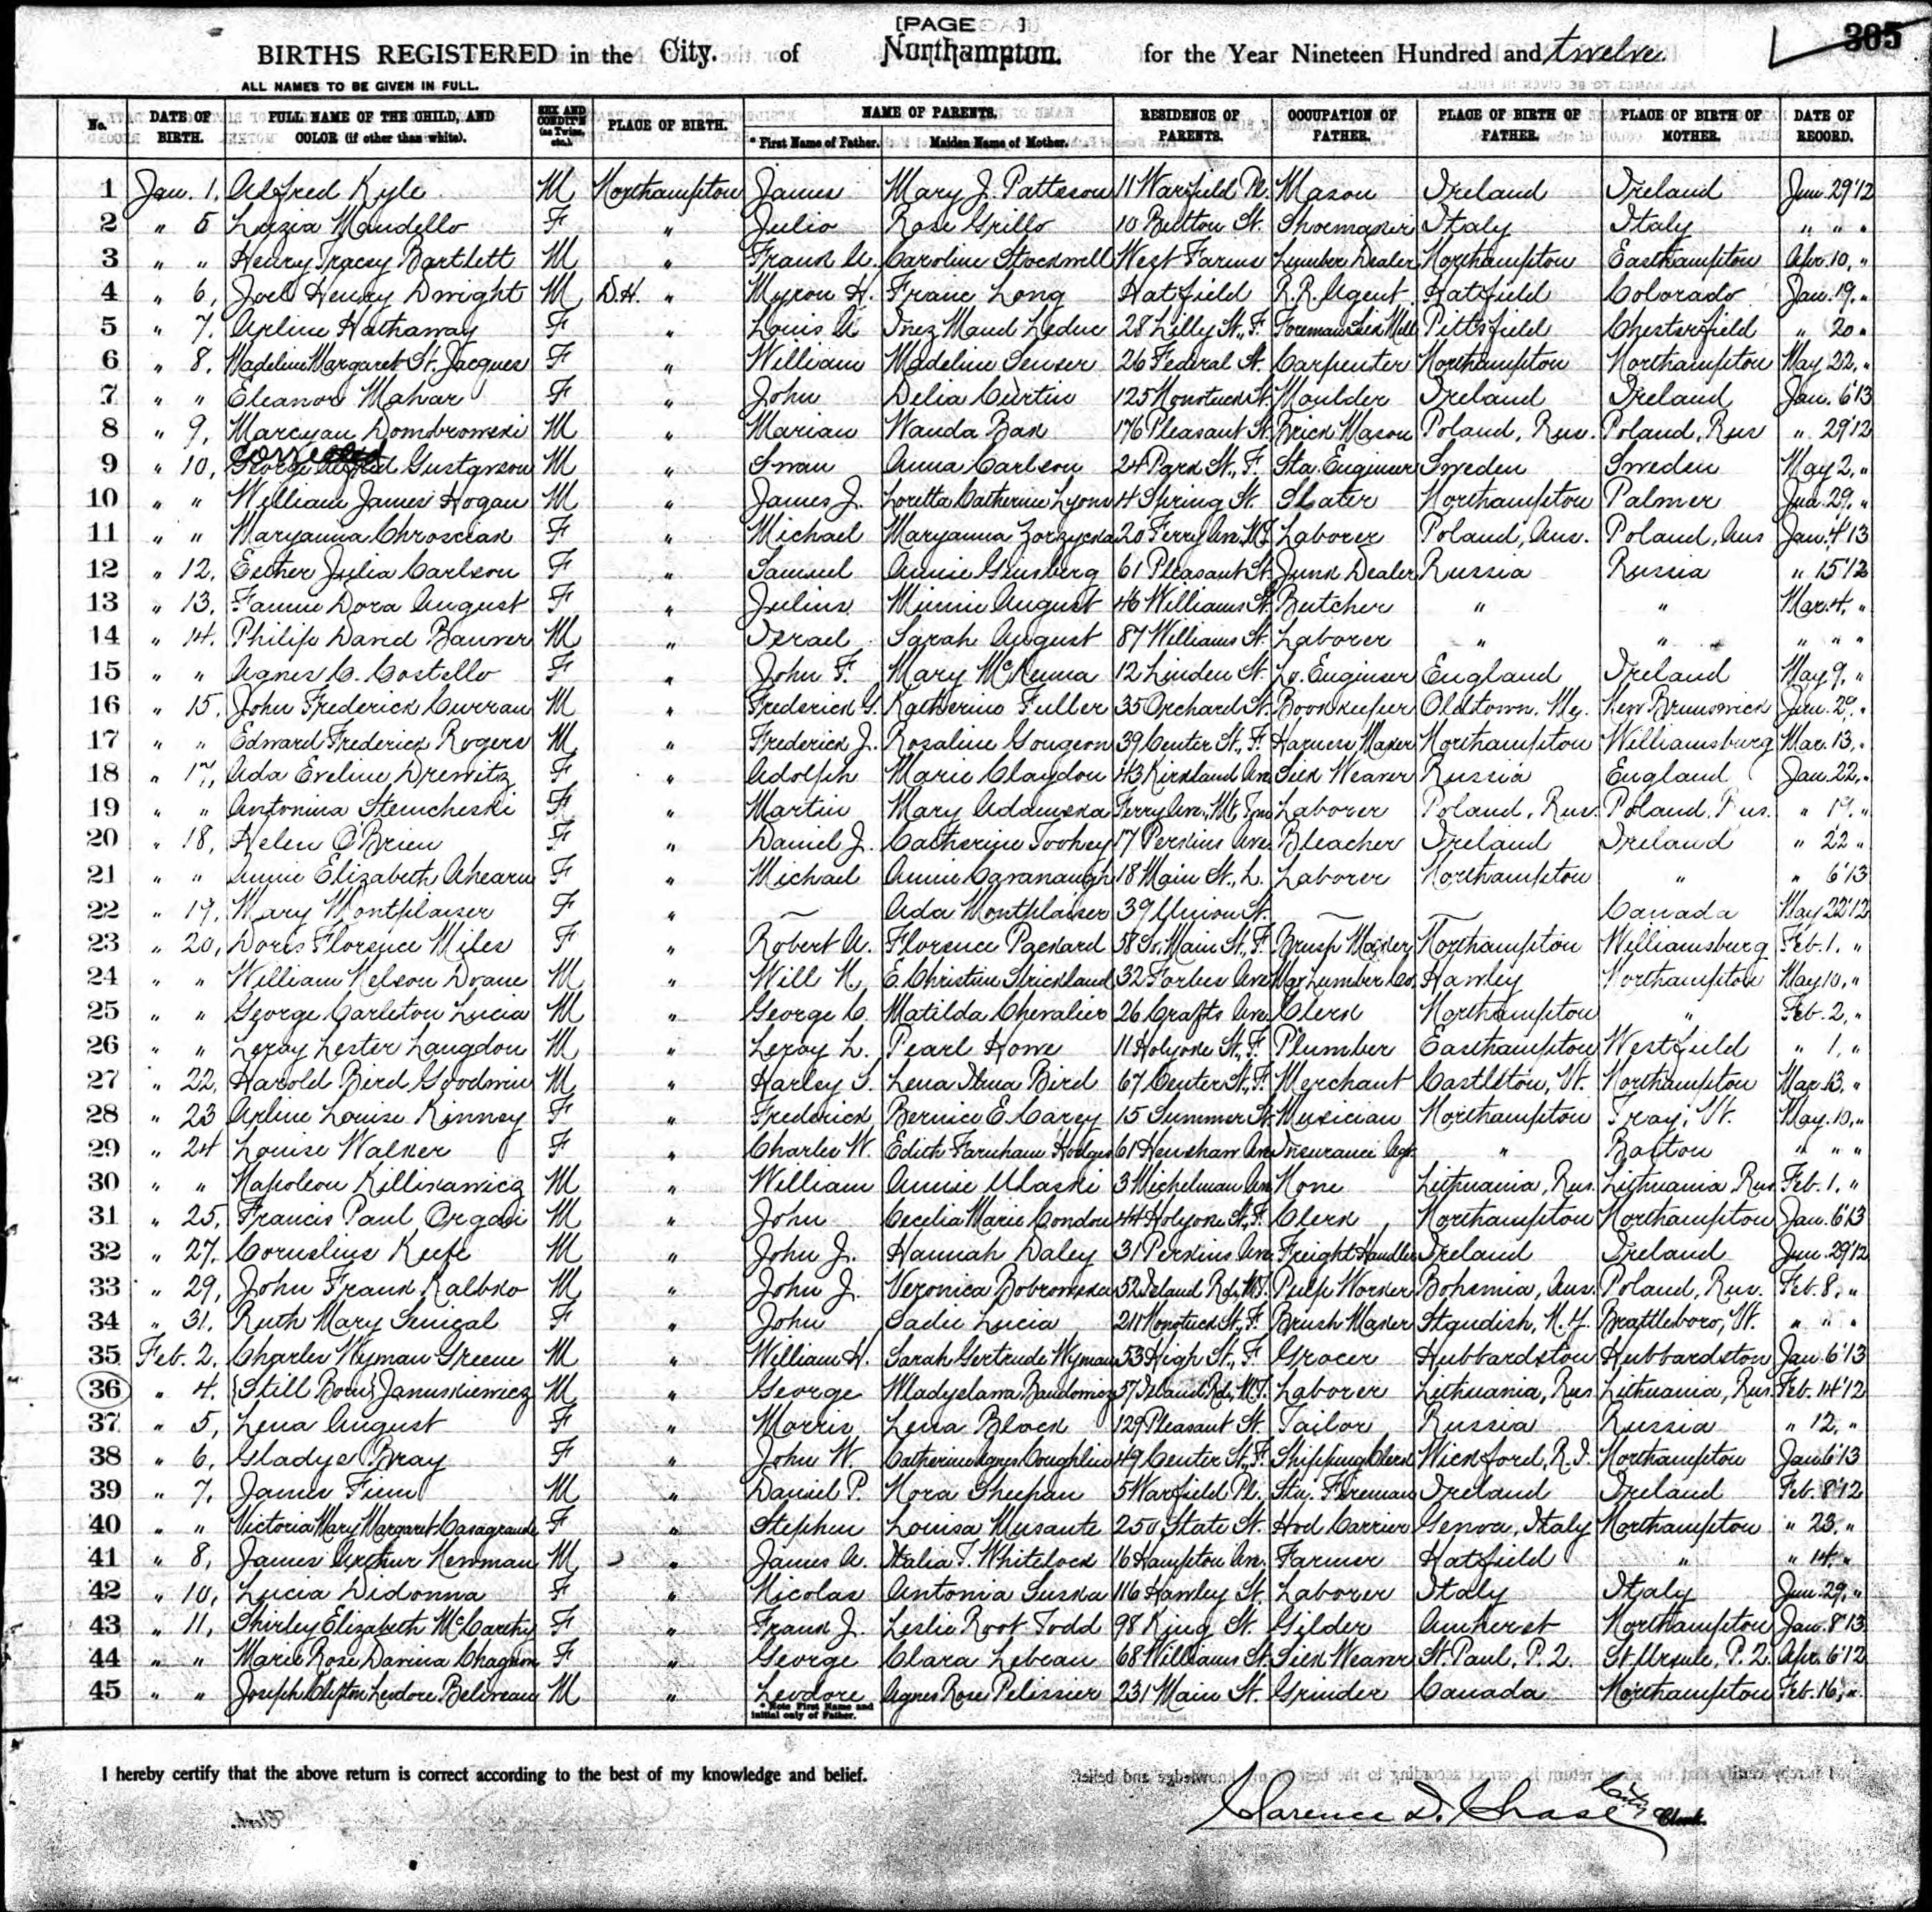 [PAGE ]
305
BIRTHS REGISTERED in the City. of Northampton. for the Year Nineteen Hundred and twelve.
ALL NAMES TO BE GIVEN IN FULL.
No. DATE OF BIRTH. FULL NAME OF THE CHILD, AND COLOR (if other than white). SEX AND CONDIT'N (as Twins, etc.). PLACE OF BIRTH. NAME OF PARENTS. * First Name of Father. Maiden Name of Mother. RESIDENCE OF PARENTS. OCCUPATION OF FATHER. PLACE OF BIRTH OF FATHER. PLACE OF BIRTH OF MOTHER. DATE OF RECORD.
1 Jan. 1, Alfred Kyle M Northampton James Mary J. Patteson 11 Warfield Pl. Mason Ireland Ireland Jun. 29'12
2 " 5 Luzia Mandello F " Julio Rose Grillo 10 Button St. Shoemaker Italy Italy " " "
3 " " Henry Tracey Bartlett M " Frank A. Caroline Stockwell West Farms Lumber Dealer Northampton Easthampton Apr. 10, "
4 " 6, Joel Henry Dwight M D.H. " Myron H. Franc Long Hatfield R.R. Agent Hatfield Colorado Jan. 19, "
5 " 7, Arline Hathaway F " Louis A Inez Maud Leduc 28 Lilly St., F. Foreman Silk Mill Pittsfield Chesterfield " 20 "
6 " 8, Madeline Margaret St. Jacques F " William Madeline Senser 26 Federal St. Carpenter Northampton Northampton May 22, "
7 " " Eleanor Mahar F " John Delia Curtin 125 Nonotuck St. Moulder Ireland Ireland Jan. 6'13
8 " 9, Marcyan Dombrowski M " Marian Wanda Bak 176 Pleasant St. Brick Mason Poland, Rus. Poland, Rus " 29'12
corrected
9 " 10, George Gustavson M " Swan Anna Carlson 24 Park St., F. Sta. Engineer Sweden Sweden May 2, "
10 " " William James Hogan M " James J. Loretta Catherine Lyons 4 Spring St. Slater Northampton Palmer Jun. 29, "
11 " " Maryanna Chrosciak F " Michael Maryanna Zorzycka 20 Ferry Ave. M.T. Laborer Poland, Aus. Poland, Aus Jan. 4'13
12 " 12, Esther Julia Carlson F " Samuel Annie Ginsberg 61 Pleasant St. Junk Dealer Russia Russia " 15'12
13 " 13, Fannie Dora August F " Julius Minnie August 46 Williams St. Butcher " " Mar. 4, "
14 " 14, Philip David Bauver M " Israel Sarah August 87 Williams St. Laborer " " " " "
15 " " Agnes C. Costello F " John F. Mary McKenna 12 Linden St. Lo. Engineer England Ireland May 9, "
16 " 15, John Frederick Curran M " Frederick G. Katherine Fuller 35 Orchard St. Bookkeeper Oldtown, Me. New Brunswick Jun. 29, "
17 " " Edward Frederick Rogers M " Frederick J. Rosaline Gougeon 39 Center St., F. Harness Maker Northampton Williamsburg Mar. 13, "
18 " 17, Ada Eveline Drewitz F " Adolph Marie Claydon 43 Kirkland Ave Silk Weaver Russia England Jan. 22, "
19 " " Antonina Stencheski F " Martin Mary Adamska Ferry Ave., Mt. Tom Laborer Poland, Rus. Poland, Rus. " 19, "
20 " 18, Helen O'Brien F " Daniel J. Catherine Toohey 17 Perkins Ave Bleacher Ireland Ireland " 22 "
21 " " Annie Elizabeth Ahearn F " Michael Annie Cavanaugh 18 Main St., L. Laborer Northampton " " 6'13
22 " 19, Mary Montplaiser F " — Ada Montplaiser 39 Union St. — — Canada May 22'12
23 " 20, Doris Florence Miles F " Robert A. Florence Packard 58 So. Main St., F. Brush Maker Northampton Williamsburg Feb. 1, "
24 " " William Nelson Doane M " Will N. E. Christine Strickland 32 Forbes Ave Mgr Lumber Co. Hawley Northampton May 10, "
25 " " George Carleton Lucia M " George C. Matilda Chevalier 26 Crafts Ave. Clerk Northampton " Feb. 2, "
26 " " Leroy Lester Langdon M " Leroy L. Pearl Howe 11 Holyoke St., F. Plumber Easthampton Westfield " 1, "
27 " 22, Harold Bird Goodwin M " Harley S. Lena Bird 67 Center St., F. Merchant Castleton, Vt. Northampton Mar. 13, "
28 " 23 Arline Louise Kinney F " Frederick Bernice E. Carey 15 Summer St Musician Northampton Troy, Vt. May. 10, "
29 " 24 Louise Walker F " Charles W. Edith Farnham Hodges 61 Henshaw Ave Insurance Agt. " Boston " " "
30 " " Napoleon Killikawicz M " William Annie Ulaski 3 Michelman Ave None Lithuania, Rus. Lithuania, Rus Feb. 1, "
31 " 25, Francis Paul Organ M " John Cecelia Marie Condon 44 Holyoke St., F. Clerk Northampton Northampton Jan. 6'13
32 " 27, Cornelius Keefe M " John J. Hannah Daley 31 Perkins Ave Freight Handler Ireland Ireland Jun. 29'12
33 " 29, John Frank Kalbko M " John J. Veronica Bobrowska 52 Island Rd., M.T. Pulp Worker Bohemia, Aus. Poland, Rus. Feb. 8, "
34 " 31, Ruth Mary Senical F " John Sadie Lucia 211 Nonotuck St., F. Brush Maker Standish, N.Y. Brattleboro, Vt. " " "
35 Feb. 2, Charles Wyman Greene M " William H. Sarah Gertrude Wyman 53 High St., F Grocer Hubbardston Hubbardston Jan. 6'13
36 " 4, {Still Born} Januskiewicz M " George Wladyslawa 57 Island Rd., M.T. Laborer Lithuania, Rus Lithuania, Rus. Feb. 14'12
37 " 5, Lena August F " Morris Lena Block 129 Pleasant St. Tailor Russia Russia " 12, "
38 " 6, Gladys Bray F " John W. Catherine Agnes Coughlin 49 Center St., F. Shipping Clerk Wickford, R.I. Northampton Jan 6'13
39 " 7, James Finn M " Daniel P. Nora Sheehan 5 Warfield Pl. Sta. Fireman Ireland Ireland Feb. 8'12
40 " " Victoria Mary Margaret Casagrande F " Stephen Louisa Musante 250 State St. Hod Carrier Genoa, Italy Northampton " 23, "
41 " 8, James Arthur Newman M " James A. Italia T. Whitelock 16 Hampton Ave. Farmer Hatfield " " 14, "
42 " 10, Lucia Didonna F " Nicolas Antonia Suska 116 Hawley St. Laborer Italy Italy Jun. 29, "
43 " 11, Shirley Elizabeth McCarthy F " Frank J. Leslie Root Todd 98 King St. Gilder Amherst Northampton Jan. 8'13
44 " " Marie Rose Davina Chagnon F " George Clara Lebeau 68 Williams St. Silk Weaver St. Paul, P.Q. St. Ursule, P.Q. Apr. 6'12
45 " " Joseph Clifton Leodore Beliveau M " Leodore Agnes Rose Pelissier 231 Main St. Grinder Canada Northampton Feb. 16, "
* Note First Name and initial only of Father.
I hereby certify that the above return is correct according to the best of my knowledge and belief.
Clarence D. Chase City Clerk.